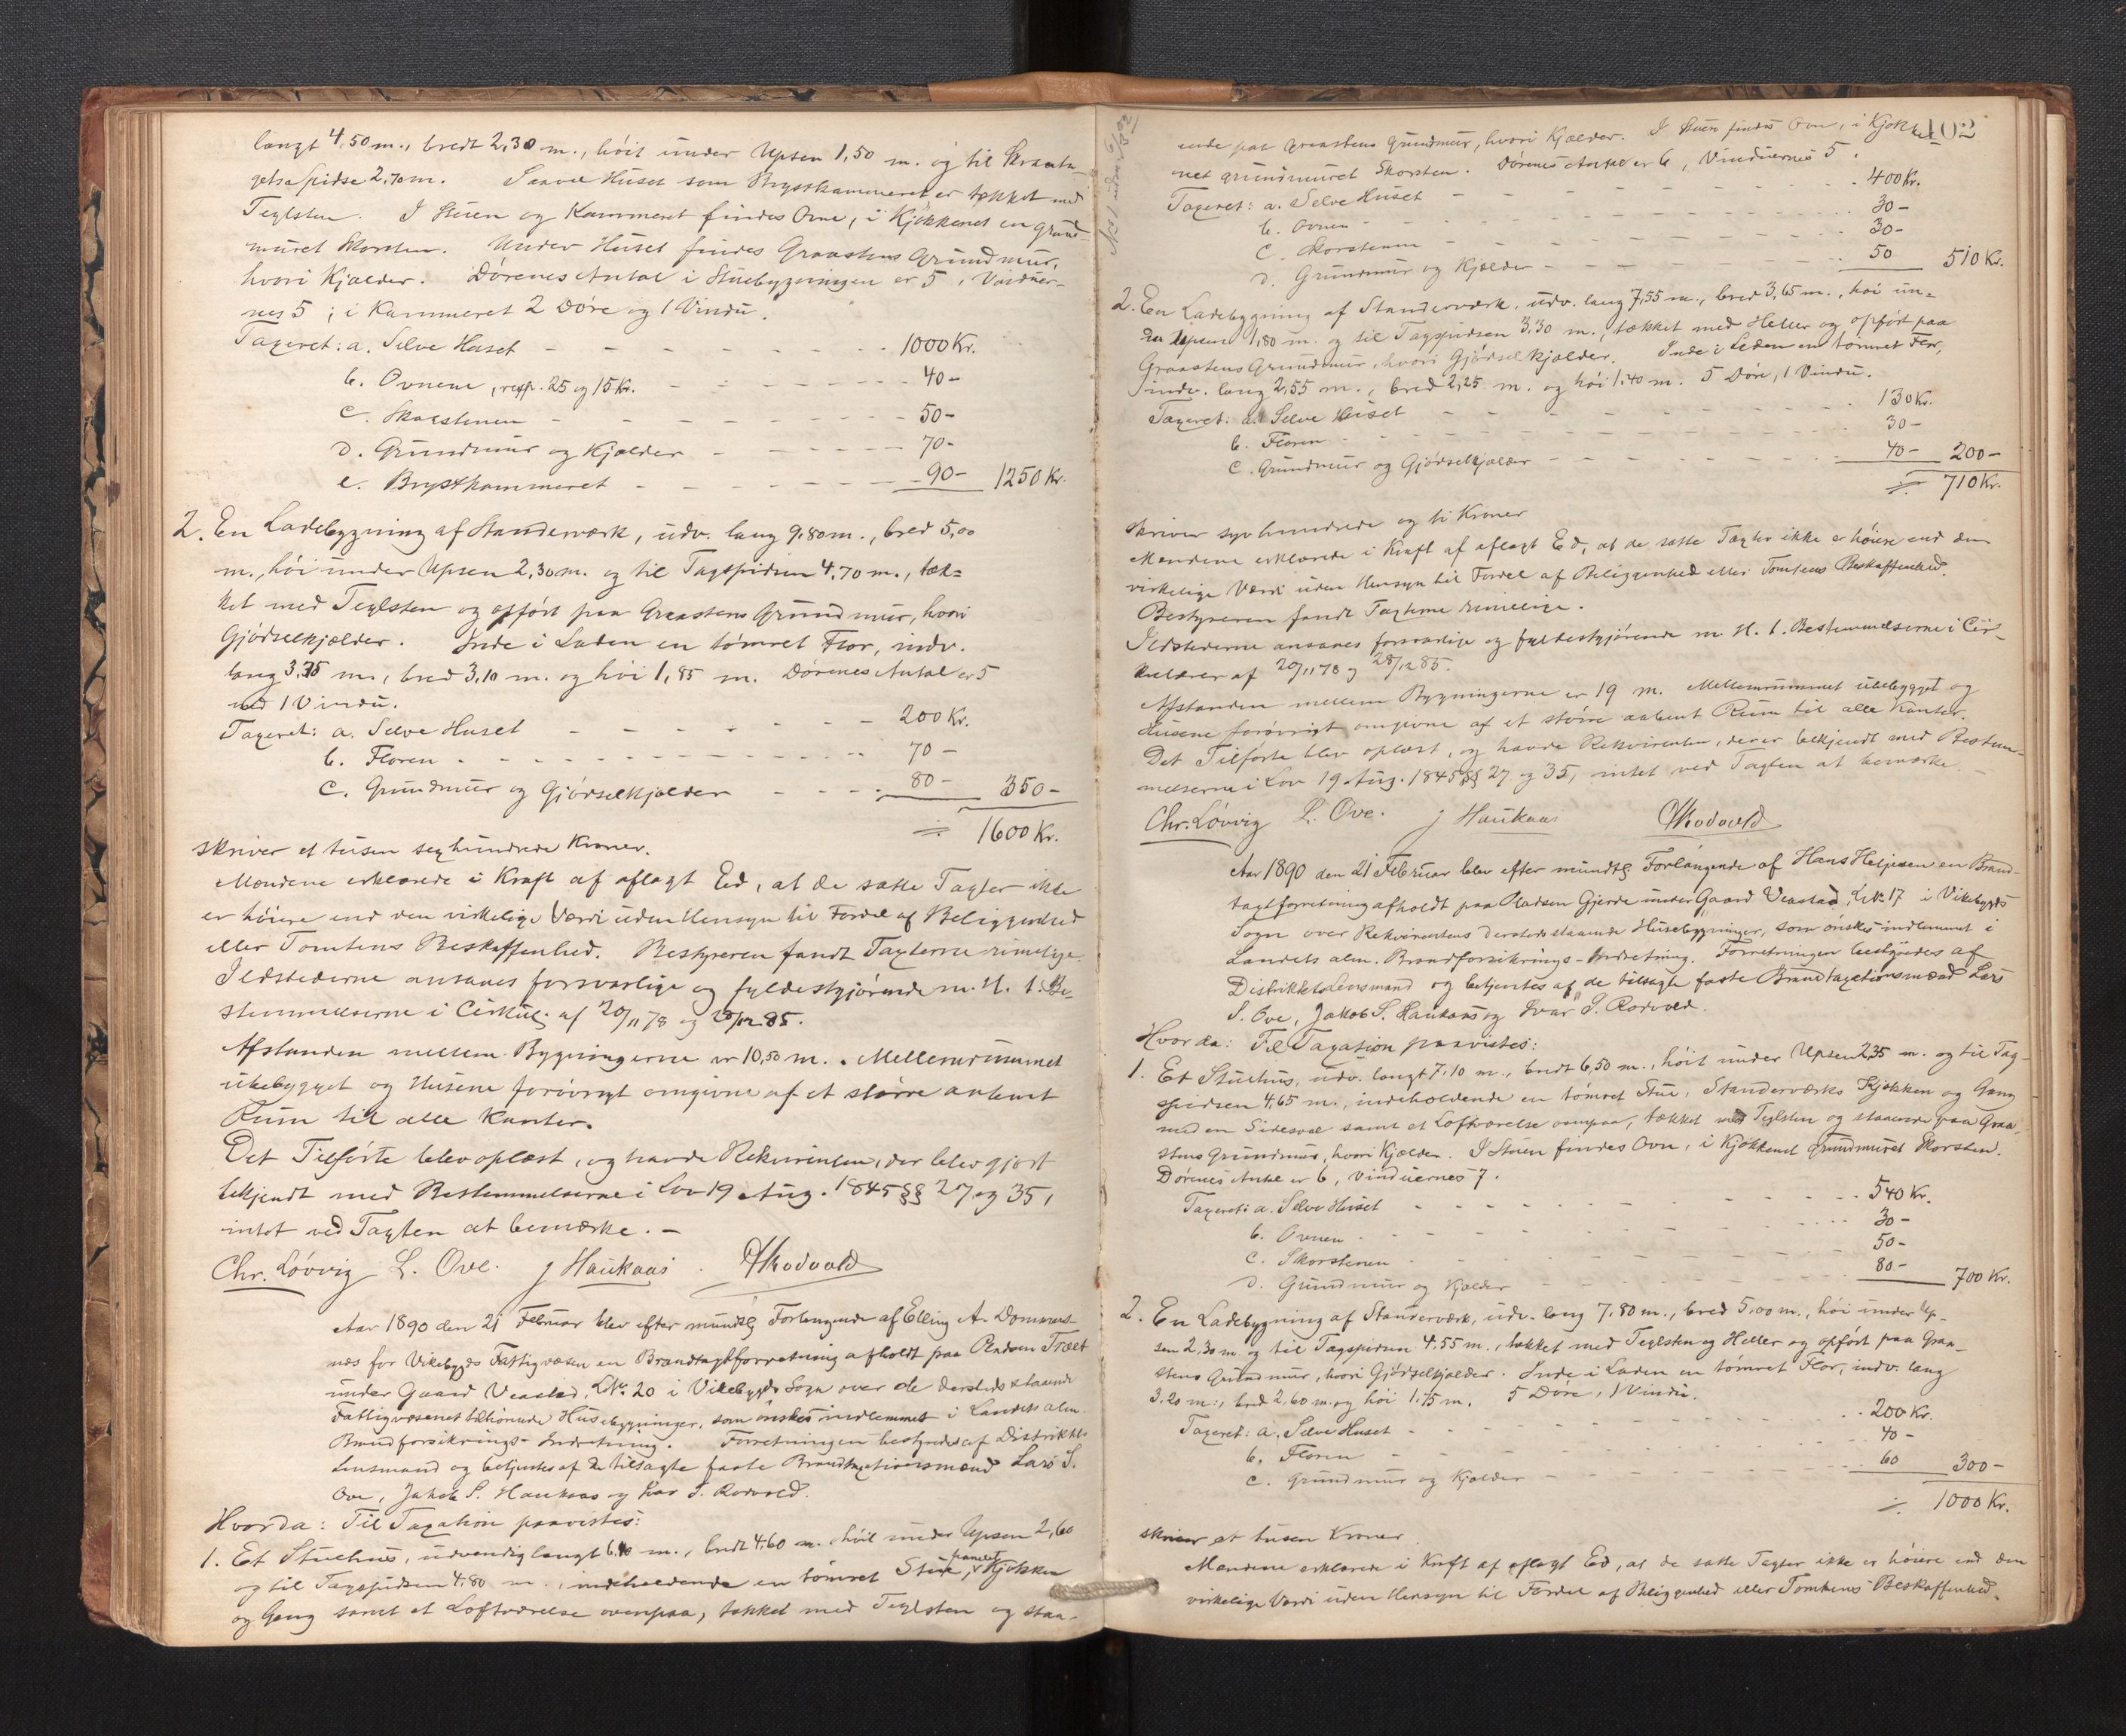 langt 4,50 m., bredt 2,30 m., høit under Upsen 1,50 m. og til Skraata-
gets Spidse 2,70 m. Saavel Huset som Brystkammeret er tækket med
Teglsten. I Stuen og Kammeret findes Ovne, i Kjøkkenet en grund-
muret Skorsten. Under Huset findes Graastens Grundmur,
hvori Kjælder. Dørenes Antal i Stuebygningen er 5, Vinduer-
nes 5; i Kammeret 2 Døre og 1 Vindu.
Taxeret: a. Selve Huset - - - - - - 1000 Kr.
b. Ovnene, resp. 25 og 15 Kr. - - - - 40 -
c. Skorstenen - - - - - - 50 -
d. Grundmur og Kjælder - - - - 70 -
e. Brystkammeret - - - - - 90 - 1250 Kr.
2. En Ladebygning af Standerværk, udv. lang 9,80 m., bred 5,00
m., høi under Upsen 2,30 m. og til Tagspidsen 4,70 m., tæk-
ket med Teglsten og opført paa Graastens Grundmur, hvori
Gjødselkjælder. Inde i Laden en tømret Flor, indv.
lang 3,75 m., bred 3,10 m. og høi 1,85 m. Dørenes Antal er 5
med 1 Vindu.
Taxeret: a. Selve Huset - - - - - 200 Kr.
b. Floren - - - - - - 70 -
c. Grundmur og Gjødselkjælder - - - 80 - 350 -
÷ 1600 Kr.
skriver et tusen sexhundrede Kroner.
Mændene erklærede i Kraft af aflagt Ed, at de satte Taxter ikke
er høiere end den virkelige Værdi uden Hensyn til Fordel af Beliggenhed
eller Tomtens Beskaffenhed. Bestyreren fandt Taxterne rimelige.
Ildstederne ansaaes forsvarlige og fyldestgjørende m. H. t. Be-
stemmelserne i Cirkul. af 20/11 78 og 28/12 85.
Afstanden mellem Bygningerne er 10,50 m. Mellemrummet
ubebygget og Husene forøvrigt omgivne af et større aabent
Rum til alle Kanter.
Det Tilførte blev oplæst, og havde Rekvirenten, der blev gjort
bekjendt med Bestemmelserne i Lov 19 Aug. 1845 §§ 27 og 35,
intet ved Taxten at bemærke. -
Chr. Løvvig L. Ove. J Haukaas. Rodvold
Aar 1890 den 21 Februar blev efter mundtlg Forlangende af Elling A. Dommers-
nes for Vikebygds Fattigvæsen en Brandtaxtforretning afholdt paa Pladsen Træet
under Gaard Veastad, L.Nr. 20 i Vikebygds Sogn over de dersteds staaende
Fattigvæsenet tilhørende Husebygninger, som ønskes indlemmet i Landets alm.
Brandforsikrings-Indretning. Forretningen bestyredes af Distriktets
Lensmand og betjentes af de tilsagte faste Brandtaxationsmænd Lars S.
Ove, Jakob S. Haukaas og Ivar S. Rodvold.
Hvorda: Til Taxation paavistes:
1. Et Stuehus, udvendig langt 6,40 m., bredt 4,60 m., høit under Upsen 2,60
og til Tagspidsen 4,80 m., indeholdende en tømret Stue, panelet Kjøkken
og Gang samt et Loftværelse ovenpaa, tækket med Teglsten og staa-
102
ende paa Graastens Grundmur, hvori Kjælder. I Stuen findes Ovn, i Kjøkke-
net grundmuret Skorsten. Dørenes Antal er 6, Vinduernes 5.
Taxeret: a. Selve Huset - - - - - - 400 Kr.
b. Ovnen - - - - - - 30 -
c. Skorstenen - - - - - - 30 -
d. Grundmur og Kjælder - - - - - 50 510 Kr.
2. En Ladebygning af Standerværk, udv. lang 7,55 m., bred 3,65 m., høi un-
der Upsen 1,80 m. og til Tagspidsen 3,30 m., tækket med Heller og opført paa
Graastens Grundmur, hvori Gjødselkjælder. Inde i Laden en tømret Flor,
indv. lang 2,55 m., bred 2,25 m. og høi 1,40 m. 5 Døre, 1 Vindu.
Taxeret: a. Selve Huset - - - - - - 130 Kr.
b. Floren - - - - - - 30 -
c. Grundmur og Gjødselkjælder - - - - 40 - 200 -
÷ 710 Kr.
skriver syv hundrede og ti Kroner
Mændene erklærede i Kraft af aflagt Ed, at de satte Taxter ikke er høiere end den
virkelige Værdi uden Hensyn til Fordel af Beliggenhed eller Tomtens Beskaffenhed.
Bestyreren fandt Taxterne rimelige.
Ildstederne ansaaes forsvarlige og fyldestgjørende m. H. t. Bestemmelserne i Cir-
kulærer af 20/11 78 og 28/12 85.
Afstanden mellem Bygningerne er 19 m. Mellemrummet ubebygget og
Husene forøvrigt omgivne af et større aabent Rum til alle Kanter.
Det Tilførte blev oplæst, og havde Rekvirenten, der er bekjendt med Bestem-
melserne i Lov 19 Aug. 1845 §§ 27 og 35, intet ved Taxten at bemærke. -
Chr. Løvvig L. Ove. J Haukaas Rodvold
Aar 1890 den 21 Februar blev efter mundtlg Forlangende af Hans Heljesen en Brand-
taxtforretning afholdt paa Pladsen Gjerde under Gaard Veastad, L.Nr. 17 i Vikebygds
Sogn over Rekvirentens dersteds staaende Husebygninger, som ønskes indlemmet i
Landets alm. Brandforsikrings-Indretning. Forretningen bestyredes af
Distriktets Lensmand og betjentes af de tilsagte faste Brandtaxationsmænd Lars
S. Ove, Jakob S. Haukaas og Ivar S. Rodvold.
Hvorda: Til Taxation paavistes:
1. Et Stuehus, udv. langt 7,10 m., bredt 6,50 m., høit under Upsen 2,35 m. og til Tag-
spidsen 4,65 m., indeholdende en tømret Stue, Standerværks Kjøkken og Gang
med en Sidesval samt et Loftværelse ovenpaa, tækket med Teglsten og staaende paa Graa-
stens Grundmur, hvori Kjælder. I Stuen findes Ovn, i Kjøkkenet grundmuret Skorsten.
Dørenes Antal er 6, Vinduernes 7.
Taxeret: a. Selve Huset - - - - - - 540 Kr.
b. Ovnen - - - - - - 30 -
c. Skorstenen - - - - - - 50 -
d. Grundmur og Kjælder - - - - - 80 - 700 Kr.
2. En Ladebygning af Standerværk, udv. lang 7,80 m., bred 5,00 m., høi under Up-
sen 2,30 m. og til Tagspidsen 4,55 m., tækket med Teglsten og Heller og opført paa Graa-
stens Grundmur, hvori Gjødselkjælder. Inde i Laden en tømret Flor, indv. lang
3,20 m., bred 2,60 m. og høi 1,75 m. 5 Døre, 1 Vindu.
Taxeret: a. Selve Huset - - - - - - 200 Kr.
b. Floren - - - - - - 40 -
c. Grundmur og Kjælder - - - - - 60 300 -
÷ 1000 Kr.
skriver et tusen Kroner
Mændene erklærede i Kraft af aflagt Ed, at de satte Taxter ikke er høiere end den
virkelige Værdi uden Hensyn til Fordel af Beliggenhed eller Tomtens Beskaffenhed.